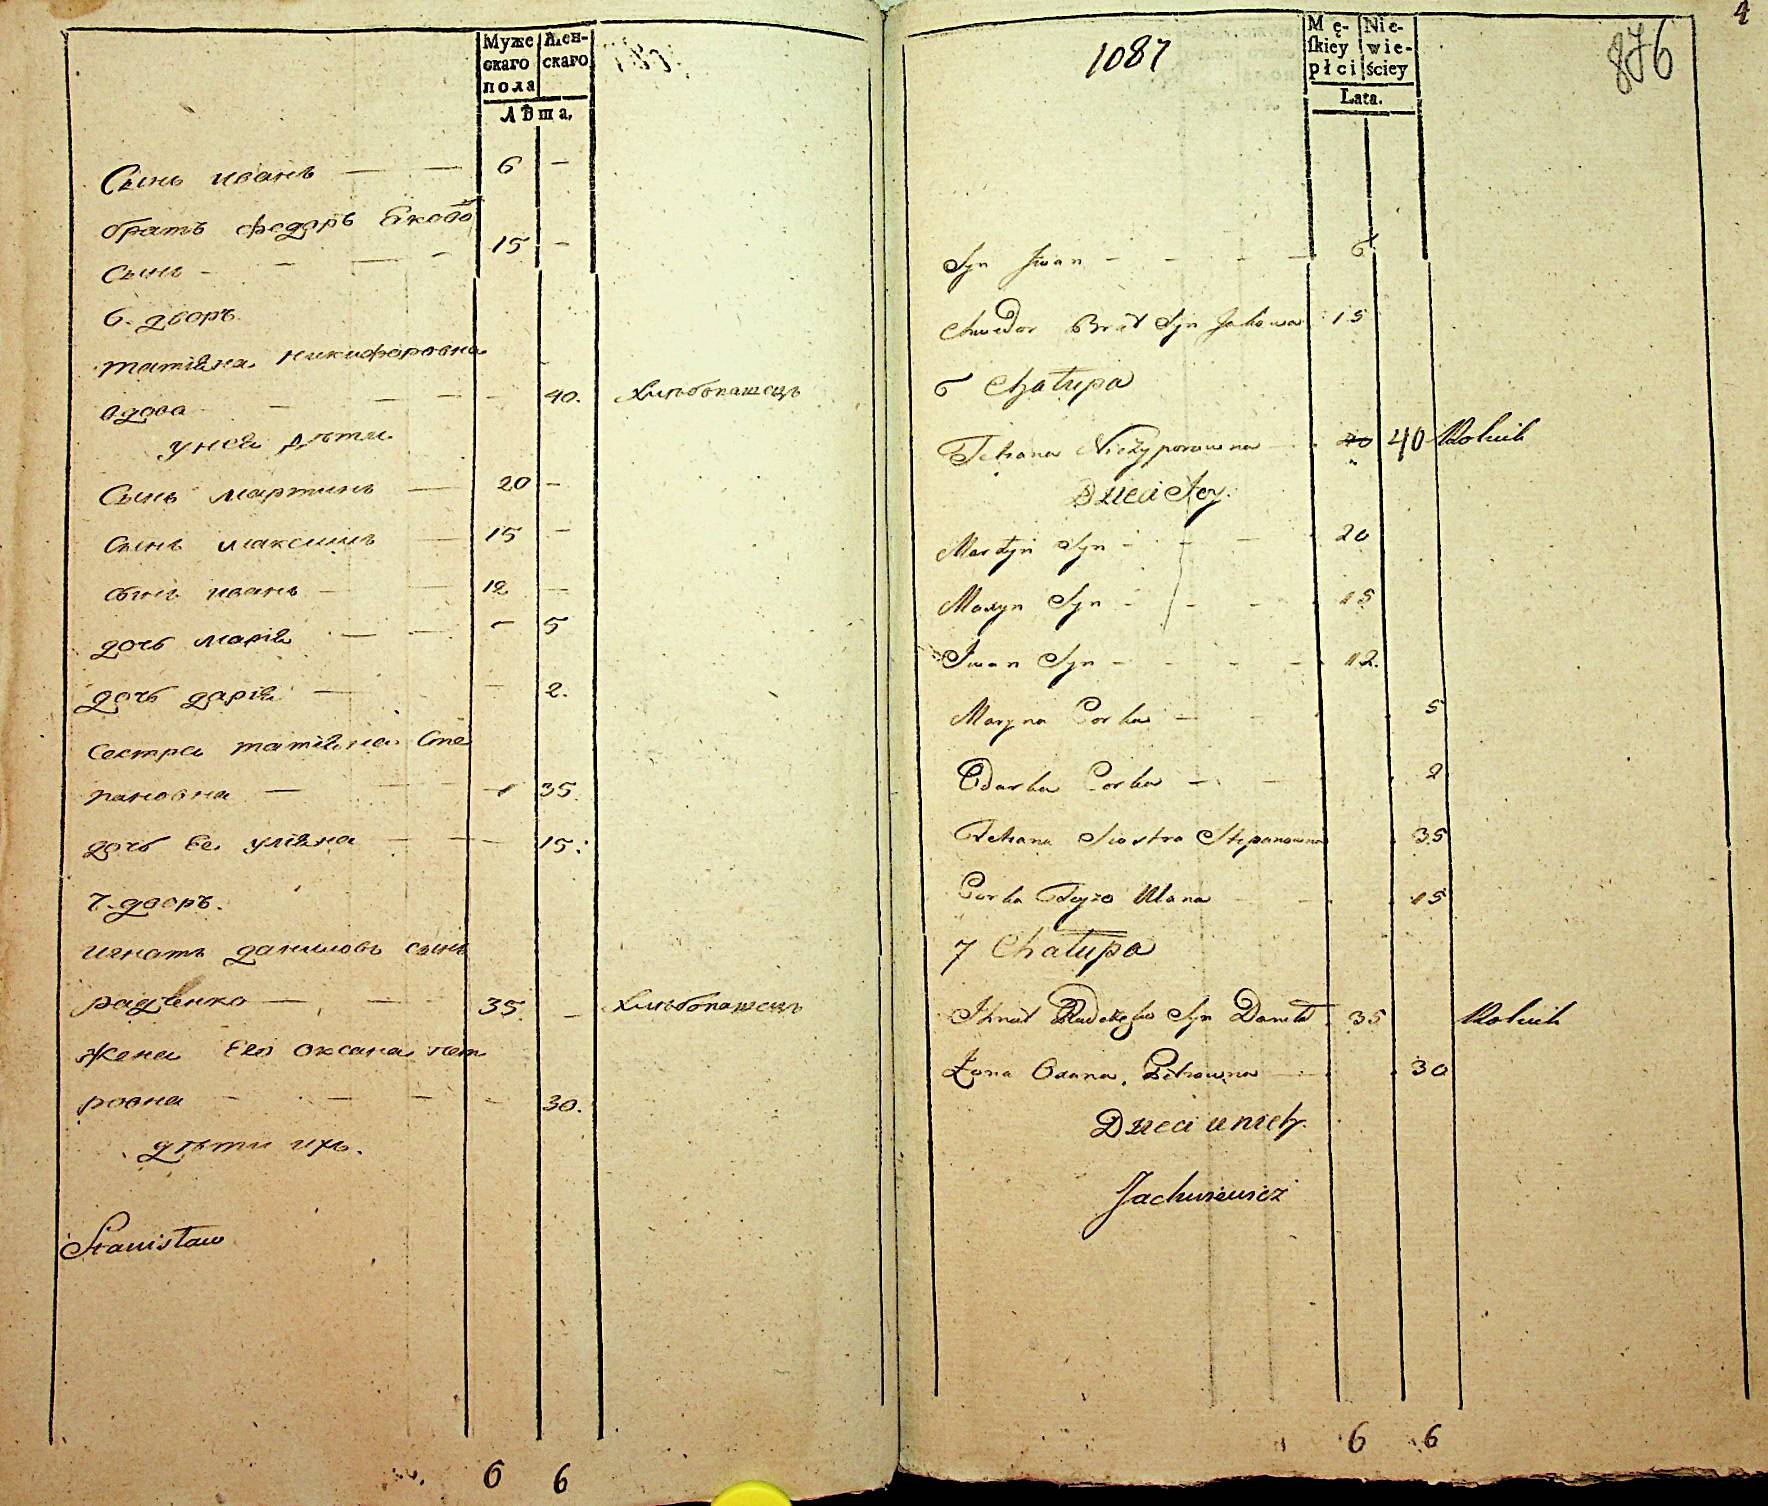 Мужескаго пола
Женскаго
Лѣта.
Сынъ иванъ — — 6 —
братъ федоръ Якова
Сынъ - - — - 15 -
6. дворъ.
татіяна никифоровна
вдова - - - - 40. хлѣбопашецъ
у неи дѣти
Сынъ мартинъ — 20 -
Сынъ максимъ — 15 -
Сынъ иванъ — 12 —
дочь марія — — - 5
дочь дарія — - 2.
сестра татіяна Сте
пановна — - - 35.
дочь Ее уліяна — — - 15.
7. дворъ.
игнатъ даниловъ сынъ
радченко — — - 35 - хлѣбопашецъ
Жена Его оксана пет
ровна - - - - 30.
дѣти ихъ.
Stanisław
6 6
1087
Mę-skiey płci
Nie-wie-ściey
Lata.
876
4
Syn Jwan - - - — 6
Chwedor Brat Syn Jakowa 15
6 Chałupa
Tetiana Niczyporowna — 40 Rolnik
Dzieci Jey.
Martyn Syn - - - 20
Maxym Syn - - - 15
Jwan Syn - - - - 12.
Maryna Corka - - 5
Odarka Corka - - 2
Tetiana Siostra Stepanowna 35
Corka Teyże Ulana - - 15
7 Chałupa
Ihnat Radczenko Syn Daniła 35 Rolnik
Żona Oxana Petrowna — 30
Dzieci u nich
Jachniewicz
6 6